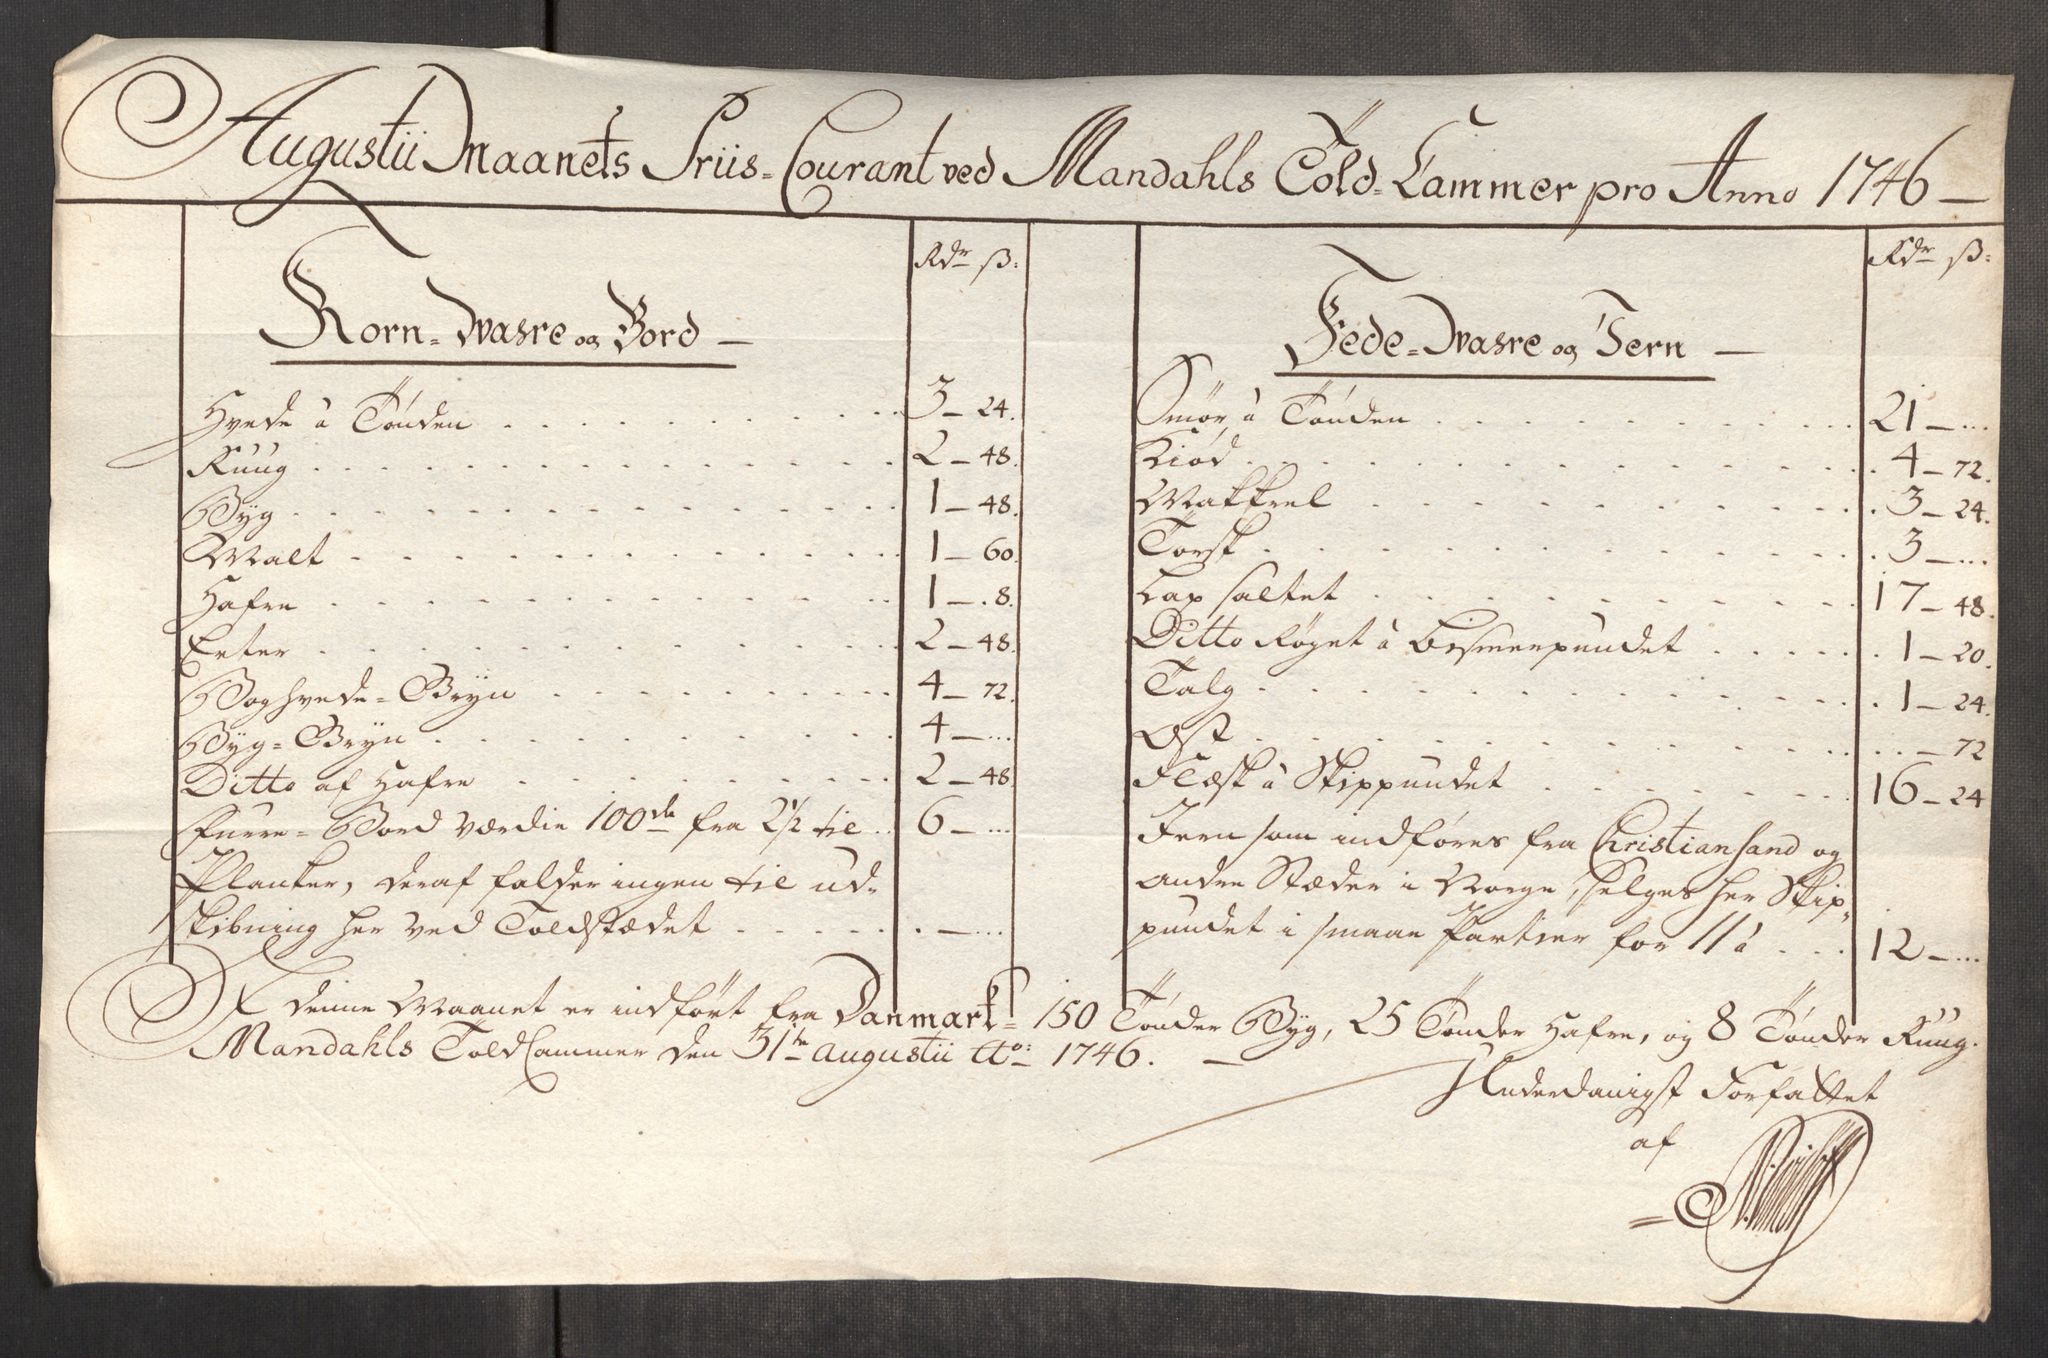 Augustii Maanets Priis-Courant ved Mandahls Told-Cammer pro Anno 1746 —
Rdr ß:
Korn-Waare og Bord —
Hvede à Tønden . . . . . . . 3 — 24.
Ruug . . . . . . . 2 — 48.
Byg . . . . . . . 1 — 48.
Malt . . . . . . . 1 — 60.
Hafre . . . . . . . 1 — . 8.
Erter . . . . . . . 2 — 48.
Boghvede-Gryn . . . . . . . 4 — 72.
Byg-Gryn . . . . . . . 4 — ...
Ditto af Hafre . . . . . . . 2 — 48.
Furre-Bord værdie 100de fra 2 1/2 til . . 6 — ...
Planker, deraf falder ingen til ud-
skibning her ved Toldstædet . . . . . . — ...
Rdr ß:
Fede-Waare og Jern —
Smør à Tønden . . . . . . . 21 — ...
Kiød . . . . . . . 4 — 72.
Makkrel . . . . . . . 3 — 24.
Torsk . . . . . . . 3 — ...
Lax saltet . . . . . . . 17 — 48.
Ditto Røget à Bismerpundet . . . . . . 1 — 20.
Talg . . . . . . . 1 — 24.
Ost . . . . . . . — 72
Flæsk à Skippundet . . . . . . . 16 — 24
Jern som indføres fra Christiansand og
andre Stæder i Norge, selges her Skip-
pundet i smaae Partier for 11 à . . . 12 — ...
I denne Maanet er indført fra Danmark = 150 Tønder Byg, 25 Tønder Hafre, og 8 Tønder Ruug.
Mandahls ToldCammer den 31te Augustii Ao: 1746. —
Underdanigst Forfattet
af